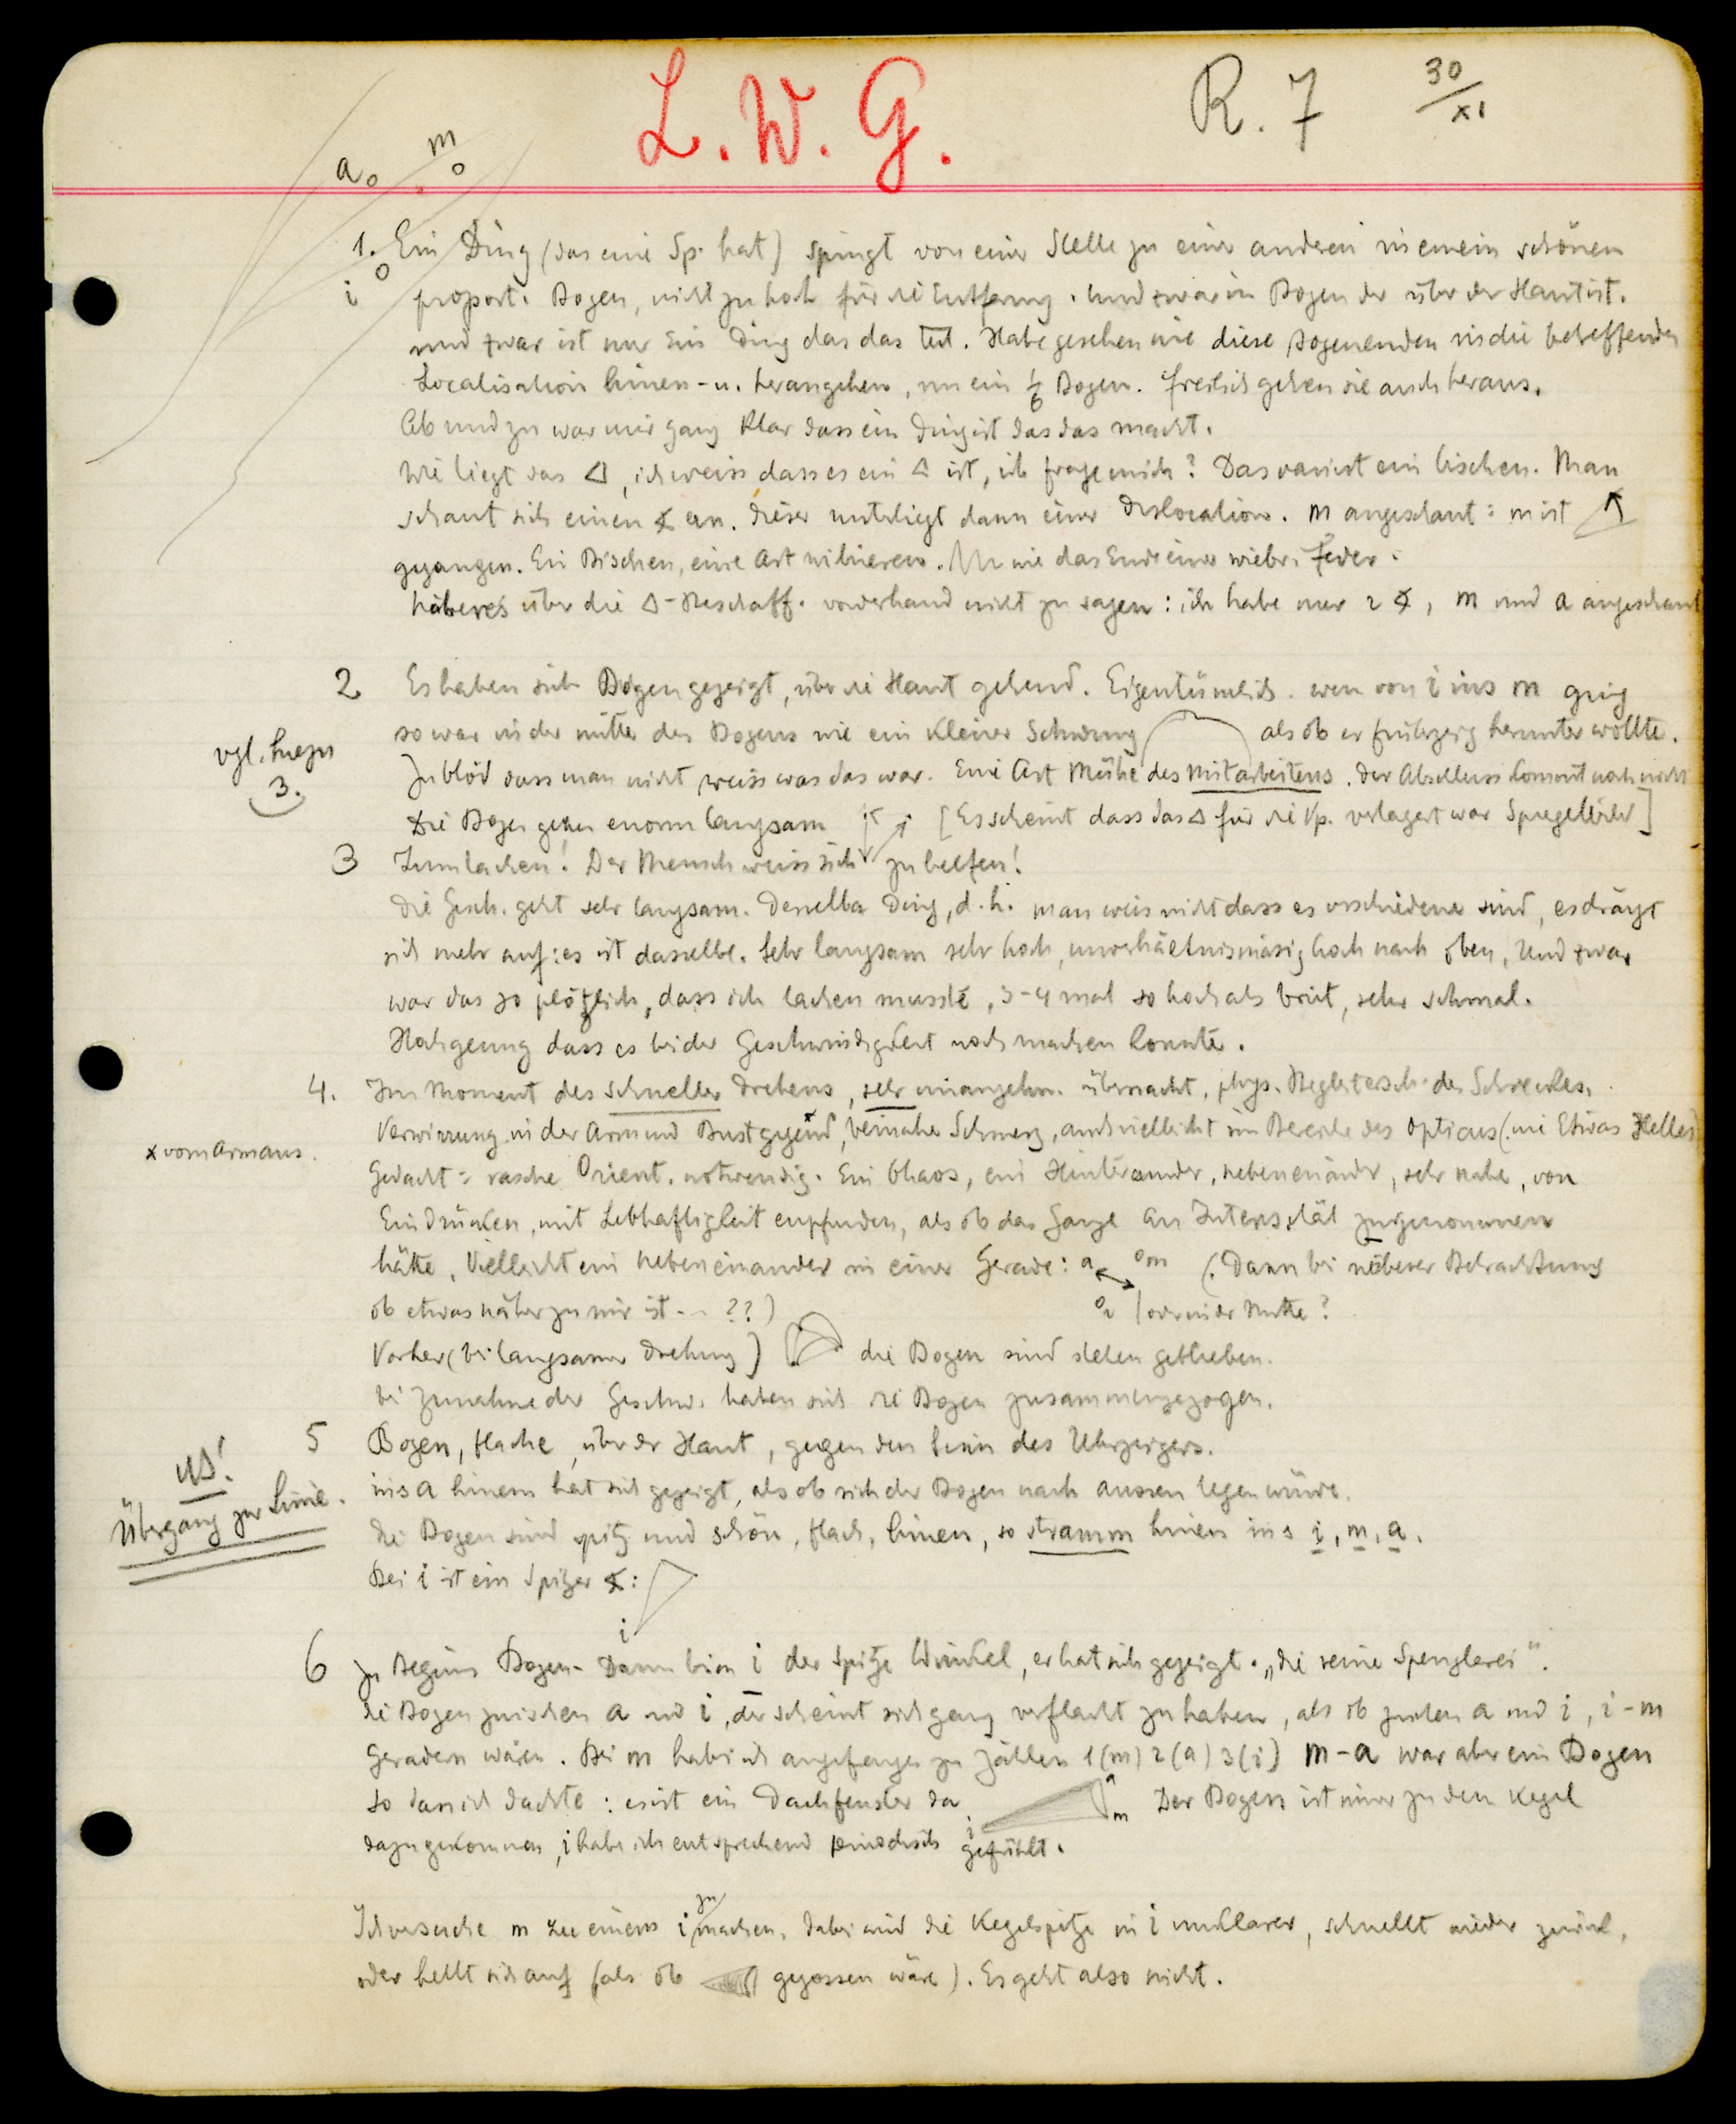 L. W. G.
R. 7 30/XI
a m
1. Ein Ding (das eine Sp. hat) springt von einer Stelle zu einer anderen in einem schönen
i proport. Bogen, nicht zu hoch für die Entfernung. Und zwar ein Bogen der über der Haut ist.
und zwar ist nur Ein Ding das das tut. Habe gesehen wie diese Bogenenden in die betreffenden
Localisation hinein- u. herausgehen, nur ein 1/6 Bogen. Freilich gehen sie auch heraus.
Ab und zu war mir ganz klar dass ein Ding ist das das macht.
Wie liegt das Δ, ich weiss dass es ein Δ ist, ich frage mich? Das variiert ein bischen. Man
schaut sich einen ∢ an. Dieser unterliegt dann einer Dislocation. m angeschaut: m ist ↗
gegangen. Ein Bischen, eine Art vibrieren. wie das Ende einer Feder.
Näheres über die Δ-Beschaff. vorderhand nicht zu sagen: ich habe nur 2 ∢, m und a angeschaut
2 Es haben sich Bogen gezeigt, über die Haut gehend. Eigentümlich. wenn von i ins m ging
so war in der mitte des Bogens wie ein kleiner Schwung als ob er frühzeitig herunter wollte.
vgl. hiezu 3.
Zu blöd dass man nicht weiss was das war. Eine Art Mühe des Mitarbeitens. Der Abschluss kommt noch nicht
Die Bogen gehen enorm langsam [Es scheint dass das Δ für die Vp. verlagert war Spiegelbild]
3 Zum lachen! Der Mensch weiss sich zu helfen!
Die Gesch. geht sehr langsam. Dasselbe Ding, d.h. man weis nicht dass es verschiedene sind, es drängt
sich mehr auf: es ist dasselbe. Sehr langsam sehr hoch, unverhältnismäsig hoch nach oben, Und zwar
war das so plötzlich, dass ich lachen musste, 3-4 mal so hoch als breit, sehr schmal.
Hoch genug dass es bei der Geschwindigkeit noch machen konnte.
4. Im Moment des schnellen Drehens, sehr unangehm. überrascht, phys. Begleitersch. des Schreckes.
Verwirrung in der Arm und Brustgegend, beinahe Schmerz, auch vielleicht im Bereiche des Opticus (wie Etwas Helles)
x vom Arm aus.
Gedacht: rasche Orient. notwendig. Ein Chaos, ein Hintereinander, nebeneinander, sehr nahe, von
Eindrücken, mit Lebhaftigkeit empfunden, als ob das Ganze an Intensität zugenommen
hätte. Vielleicht ein nebeneinander in einer Gerade: a m (Dann bei näherer Betrachtung
ob etwas näher zu mir ist - - ??) i (oder in der Mitte?
Vorher (bei langsamer Drehung) die Bogen sind stehen geblieben.
bei Zunahme der Geschw. haben sich die Bogen zusammengezogen.
5 Bogen, flache, über der Haut, gegen den Sinn des Uhrzeigers.
US!
Übergang zur Linie.
ins a hinein hat sich gezeigt, als ob sich der Bogen nach aussen legen würde.
die Bogen sind spitz und schön, flach, hinein, so stramm hinein ins i, m, a.
Bei i ist ein Spitzer ∢:
i
6 Zu Beginn Bogen. Dann beim i der Spitze Winkel, er hat sich gezeigt. „die reine Spenglerei".
die Bogen zwischen a und i, der scheint sich ganz verflacht zu haben, als ob zwischen a und i, i-m
Geraden wären. Bei m hab ich angefangen zu zählen 1(m) 2(a) 3(i) m-a war aber ein Bogen
so dass ich dachte: es ist ein Dachfenster da i a m Der Bogen ist immer zu dem Kegel
dazugekommen, i habe ich entsprechend periodisch gefühlt.
Ich versuche m zu einem i zu machen, dabei wird die Kegelspitze in i unklarer, schnellt wieder zurück,
oder hellt sich auf (als ob gegossen wäre). Es geht also nicht.